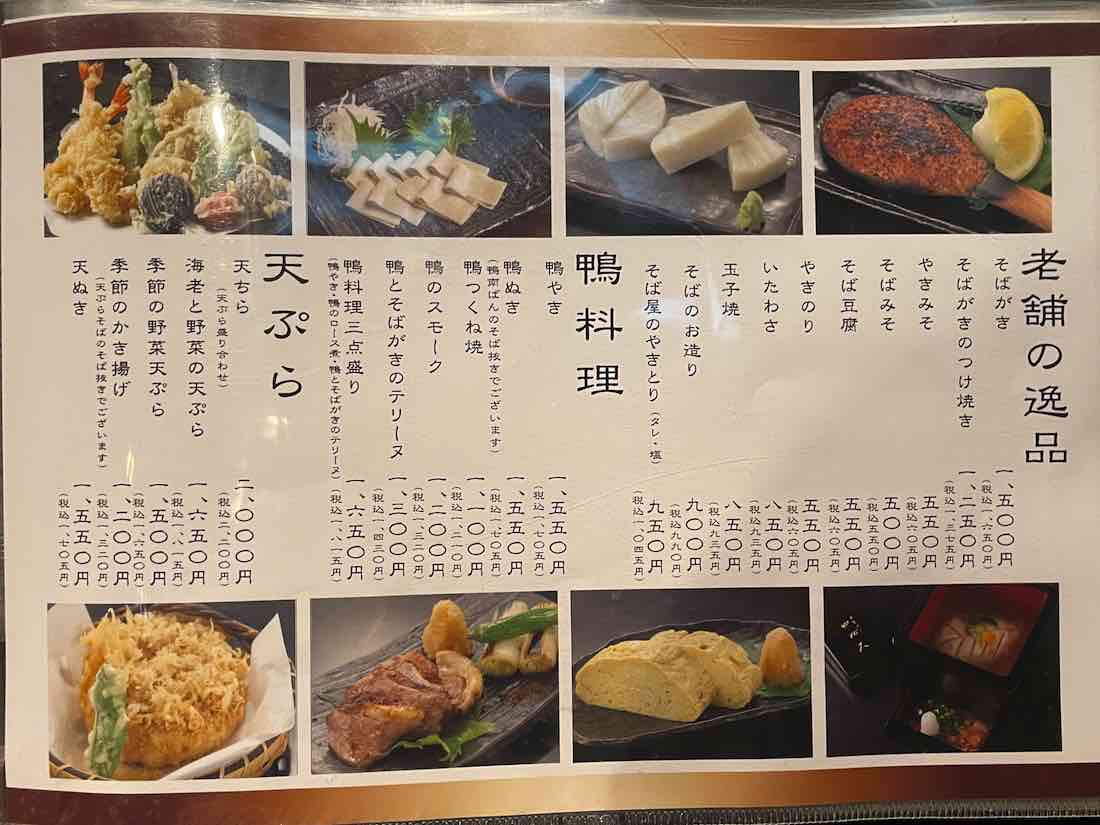 老舗の逸品
そばがき 一、五〇〇円
(税込一、六五〇円)
そばがきのつけ焼き 一、二五〇円
(税込一、三七五円)
やきみそ 五五〇円
(税込六〇五円)
そばみそ 五〇〇円
(税込五五〇円)
そば豆腐 五五〇円
(税込六〇五円)
やきのり 五五〇円
(税込六〇五円)
いたわさ 八五〇円
(税込九三五円)
玉子焼 八五〇円
(税込九三五円)
そばのお造り 九〇〇円
(税込九九〇円)
そば屋のやきとり(タレ・塩) 九五〇円
(税込一、〇四五円)
鴨料理
鴨やき 一、五五〇円
(税込一、七〇五円)
鴨ぬき 一、五五〇円
(鴨南ばんのそば抜きでございます) (税込一、七〇五円)
鴨つくね焼 一、一〇〇円
(税込一、二一〇円)
鴨のスモーク 一、二〇〇円
(税込一、三二〇円)
鴨とそばがきのテリーヌ 一、三〇〇円
(税込一、四三〇円)
鴨料理三点盛り 一、六五〇円
(鴨やき・鴨のロース煮・鴨とそばがきのテリーヌ) (税込一、八一五円)
天ぷら
天ちら 二、〇〇〇円
(天ぷら盛り合わせ) (税込二、二〇〇円)
海老と野菜の天ぷら 一、六五〇円
(税込一、八一五円)
季節の野菜天ぷら 一、五〇〇円
(税込一、六五〇円)
季節のかき揚げ 一、二〇〇円
(税込一、三二〇円)
天ぬき 一、五五〇円
(天ぷらそばのそば抜きでございます) (税込一、七〇五円)